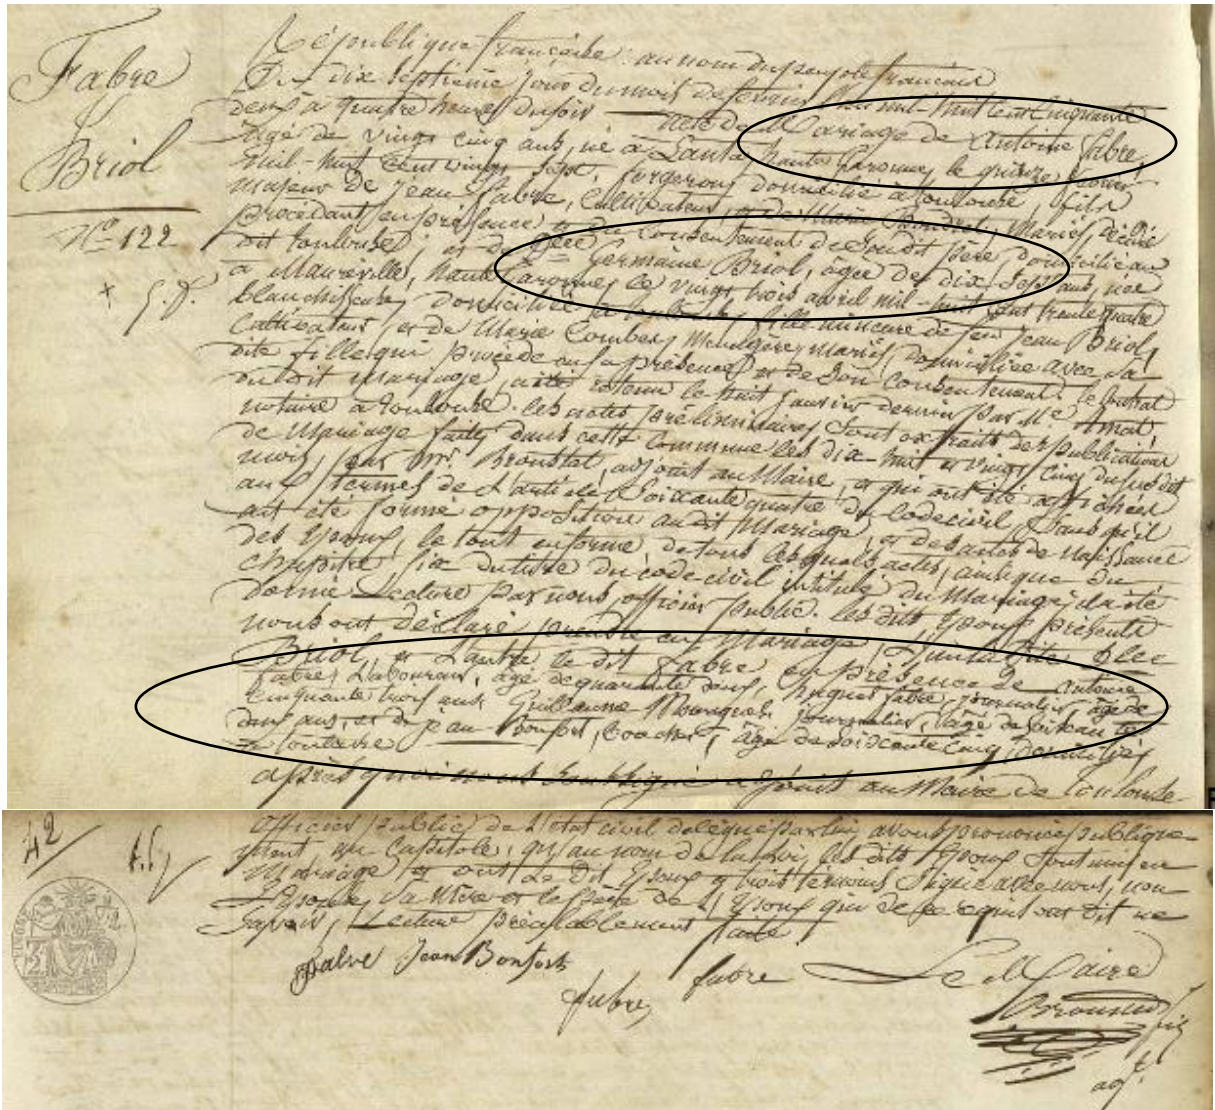 Fabre
&
Briol
Nº 122
République française. au nom du peuple français
Du dix septième jour du mois de février mil-huit cent cinquante
deux à quatre heures du soir acte de Mariage de Antoine Fabre,
âgé de vingt cinq ans, né à Lanta, haute Garonne, le quinze
mil-huit cent vingt sept, forgeron, domicilié à toulouse, fils
majeur de Jean Fabre, Cultivateur, et de Marie mariés, décédée
procédant en présence et du consentement de Son dit père domicilié au
dit toulouse, et de Germaine Briol, âgée de dix Sept ans, née
à Maureville, haute Garonne, le vingt trois avril mil-huit cent trente quatre
blanchisseuse, domiciliée à toulouse, fille mineure de feu Jean Briol,
Cultivateur, et de Marie Combes, Ménagère, mariés, domiciliée avec sa
dite fille qui procède en sa présence et de Son Consentement. le contrat
du dit mariage, a été retenu le huit Janvier dernier par Me Amat,
notaire à toulouse. les actes préliminaires Sont extraits des publications
de Mariage faites dans cette Commune les dix-huit et vingt cinq du susdit
mois, par Mr. Broustat, adjoint au Maire, et qui ont été affichées
aux termes de l'article Soixante quatre du Code civil, Sans qu'il
ait été formé opposition au dit Mariage, et des actes de Naissance
des Epoux, le tout en forme, de tous lesquels actes, ainsi que du
chapitre six du titre du code civil intitulé du Mariage, il a été
donné Lecture par nous, officier public. les dits Epoux présents
nous ont déclaré prendre en Mariage, l'un la dite Dlle
Briol, et L'autre le dit Fabre, en présence de Antoine
Fabre, Laboureur, âgé de quarante deux, Hugues Fabre, journalier, âgé de
cinquante trois ans, Guillaume journalier, âgé de soixante
deux ans, et de Jean Bonfort, Cocher, âgé de soixante cinq, domiciliés
à toulouse
après quoi nous Soussigné adjoint au Maire de Toulouse
42
officier public de l'état civil délégué par lui, avons prononcé publique-
ment au Capitole, qu'au nom de la loi, les dits Epoux Sont unis en
Mariage et ont le dit Epoux et trois témoins Signé avec nous, non
L'Epouse, Sa Mère et le père de L'Epoux qui de ce requis ont dit ne
Savoir, Lecture préalablement faite.
fabre Jean Bonfort
fabre
fabre
Le Maire
adjt.